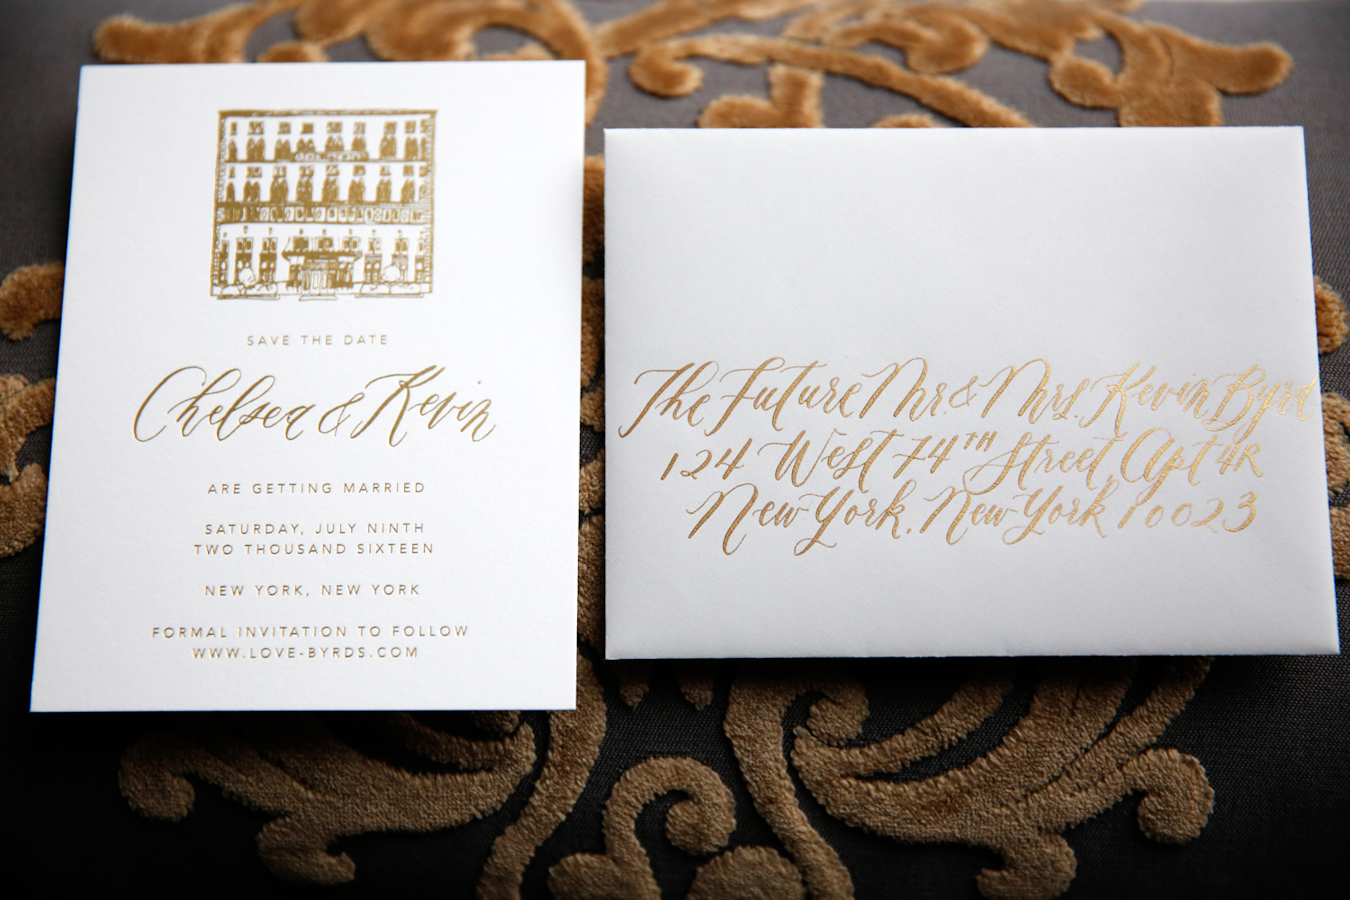 SAVE THE DATE
Chelsea & Kevin
ARE GETTING MARRIED
SATURDAY, JULY NINTH
TWO THOUSAND SIXTEEN
NEW YORK, NEW YORK
FORMAL INVITATION TO FOLLOW
WWW.LOVE-BYRDS.COM
The Future Mr. & Mrs. Kevin Byrd
124 West 74TH Street, Apt 4R
New York, New York 10023